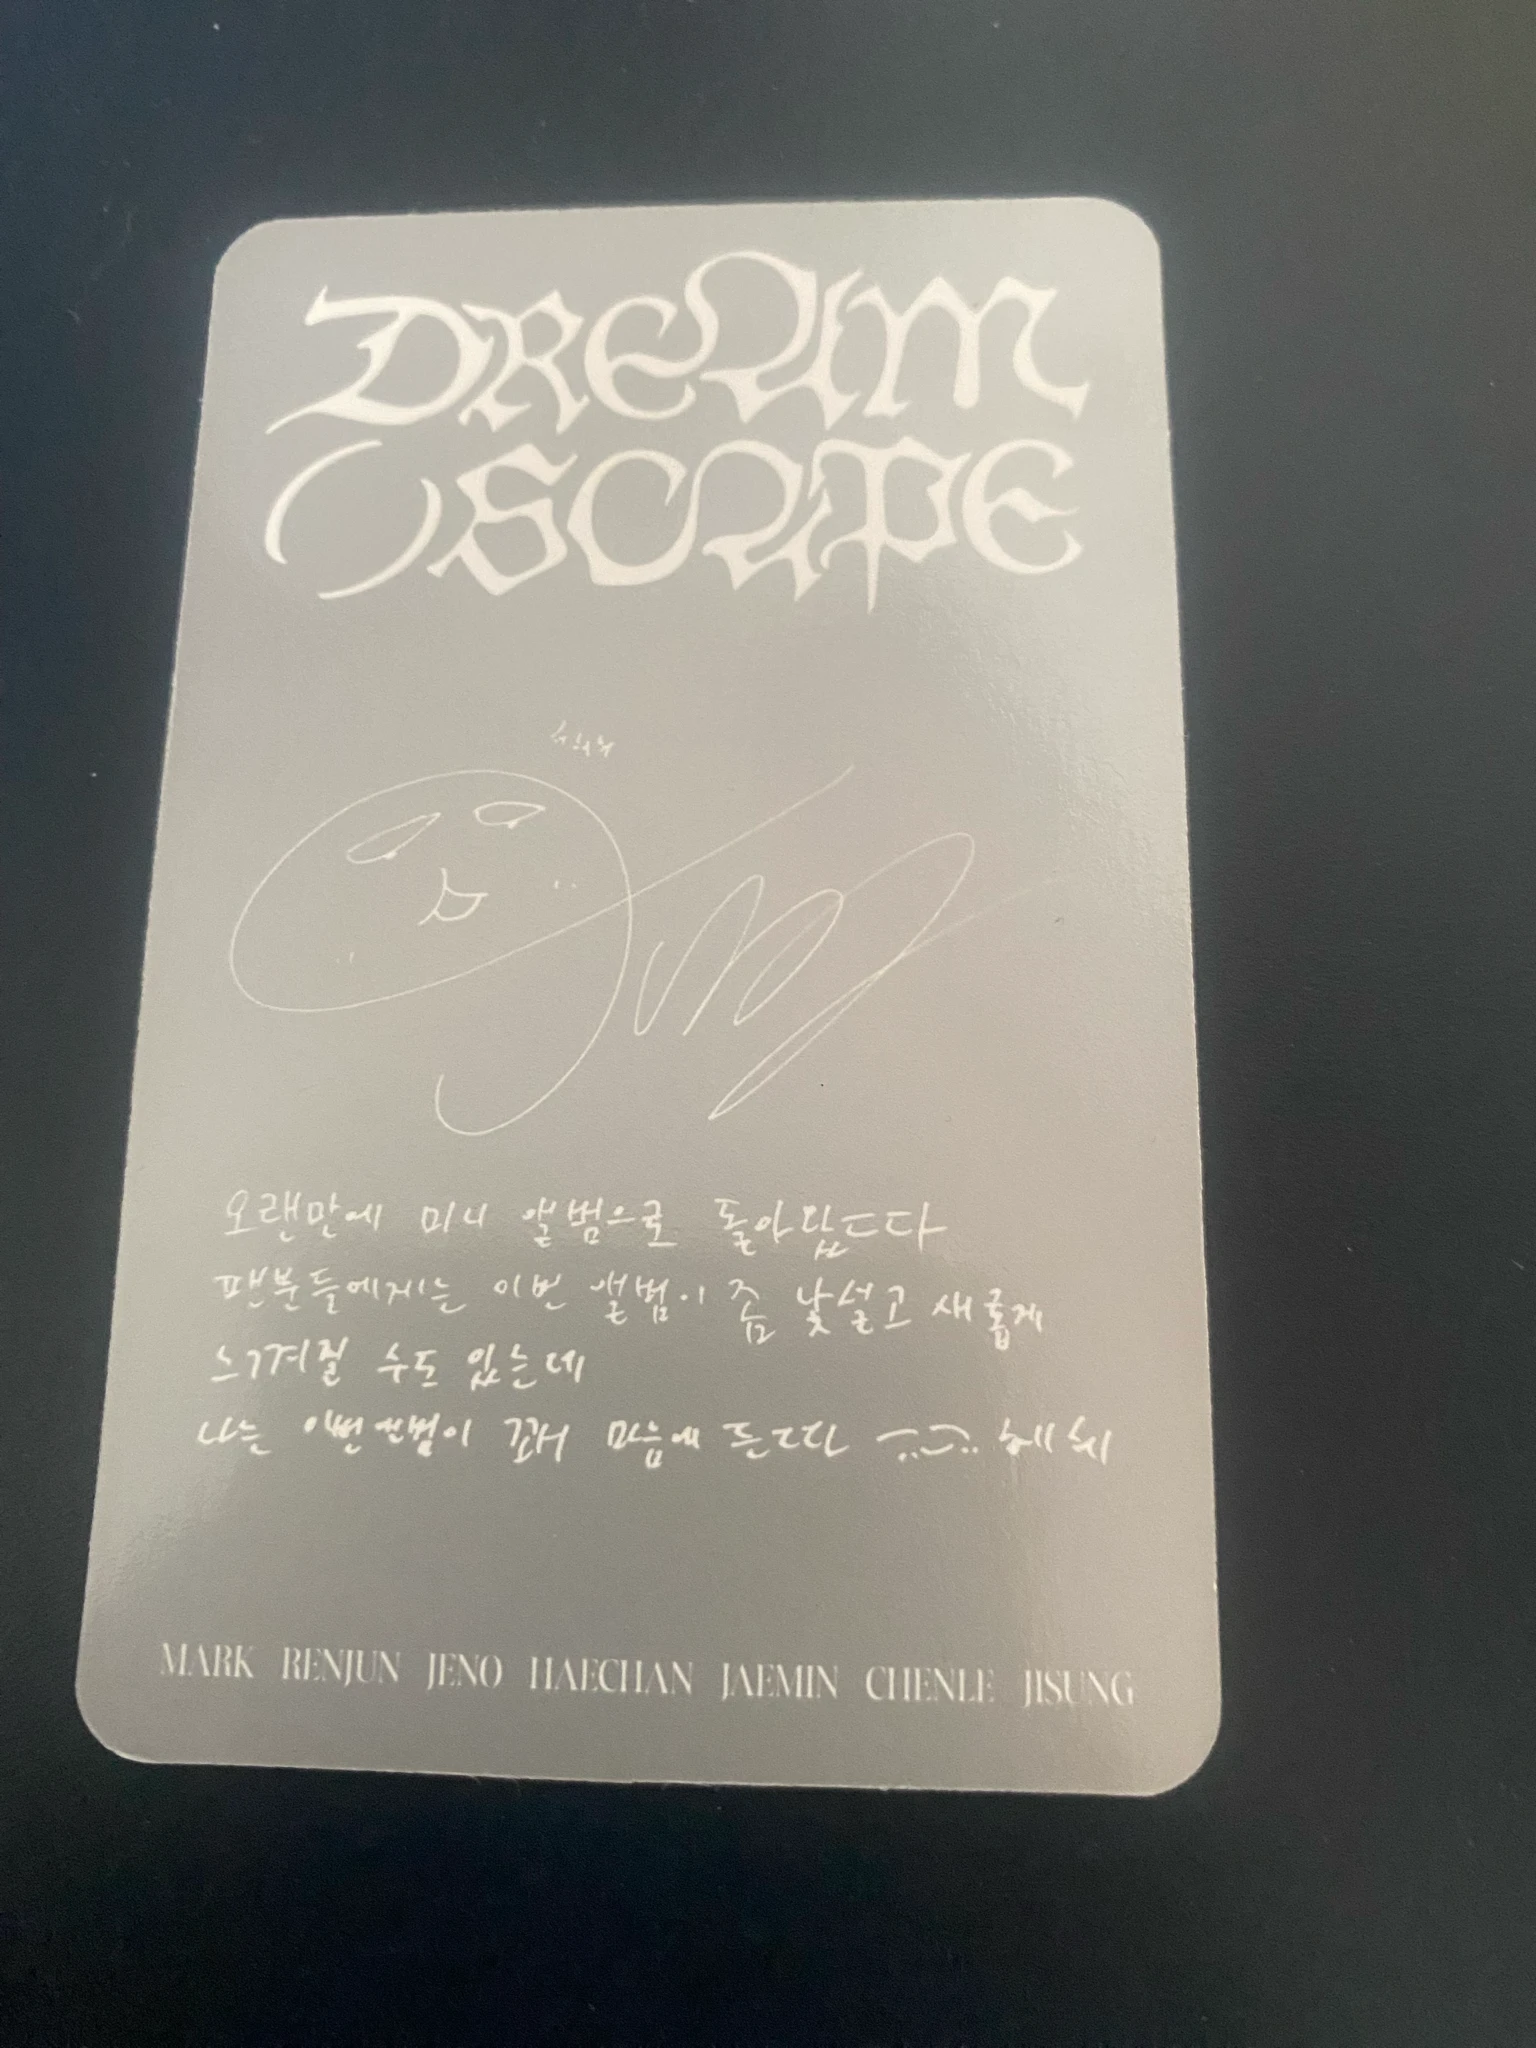 DREAM
SCAPE
오랜만에 미니 앨범으로 돌아왔ㄷㄷㅏ
팬분들에게는 이번 앨범이 좀 낯설고 새롭게
느껴질 수도 있는데
나는 이번 앨범이 꽤 마음에 든ㄷㄷㅏ 헤헤
MARK RENJUN JENO HAECHAN JAEMIN CHENLE JISUNG